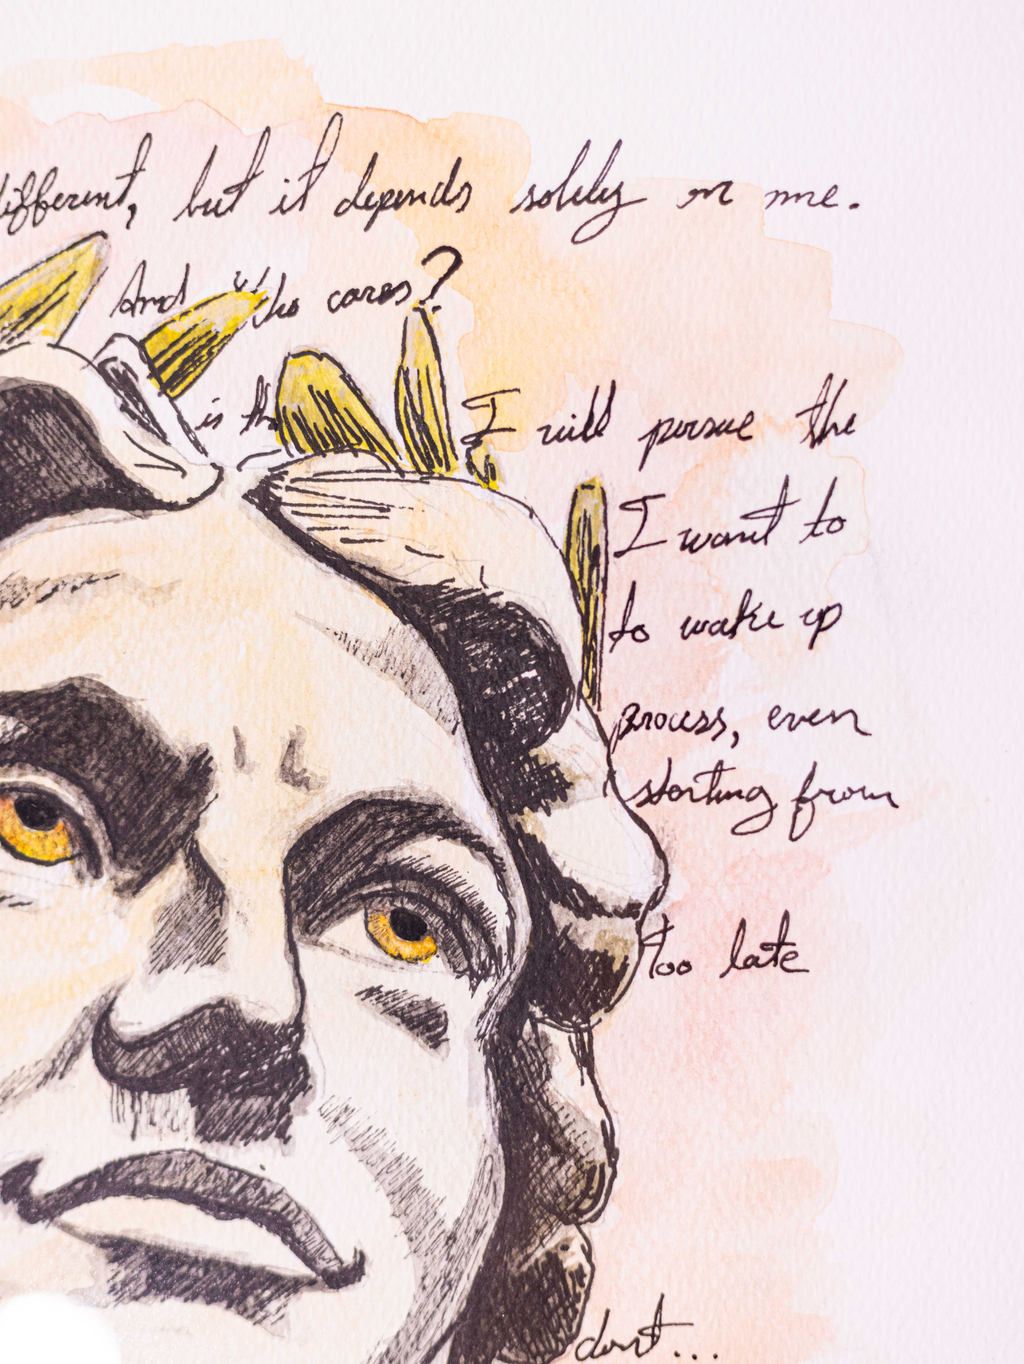 different, but it depends solely on me.
And who cares?
is the I will pursue the
I want to
to wake up
process, even
starting from
too late
dont...